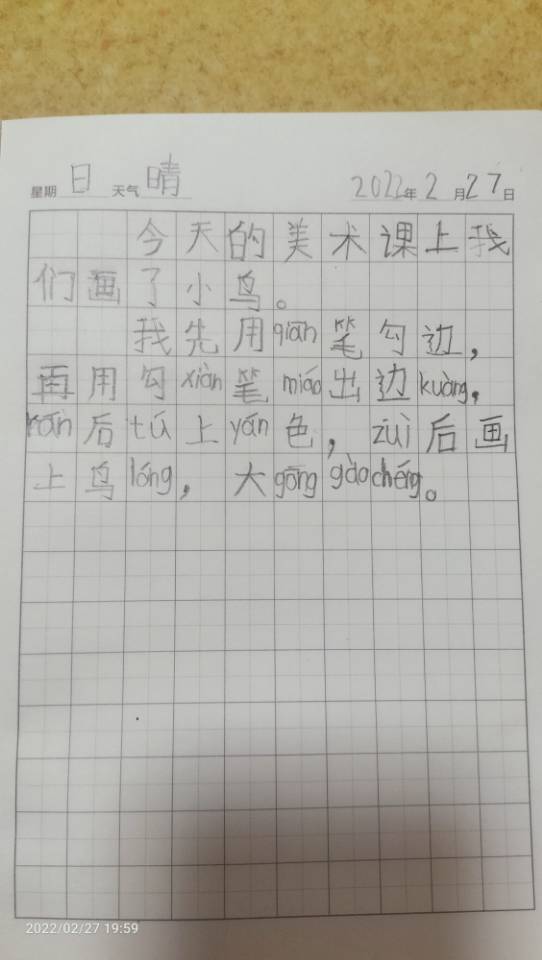 星期 日 天气 晴 2022年 2月27日
今天的美术课上我
们画了小鸟。
我先用qiān笔勾边,
再用勾xiàn笔miáo出边kuàng,
rán后tú上yán色,zuì后画
上鸟lóng,大gōng gào chéng。
2022/02/27 19:59